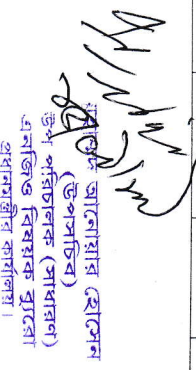 আনোয়ার হোসেন
(উপসচিব)
উপ পরিচালক (সাধারণ)
এনজিও বিষয়ক ব্যুরো
প্রধানমন্ত্রীর কার্যালয়।